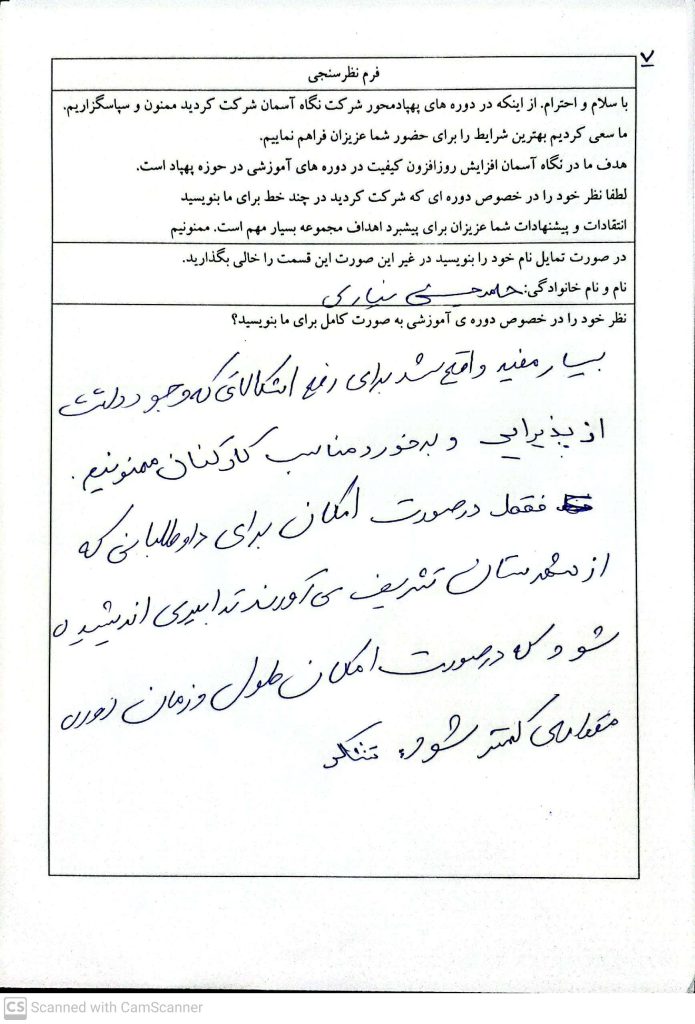 ۷
فرم نظرسنجی
با سلام و احترام. از اینکه در دوره های پهپادمحور شرکت نگاه آسمان شرکت کردید ممنون و سپاسگزاریم.
ما سعی کردیم بهترین شرایط را برای حضور شما عزیزان فراهم نماییم.
هدف ما در نگاه آسمان افزایش روزافزون کیفیت در دوره های آموزشی در حوزه پهپاد است.
لطفا نظر خود را در خصوص دوره ای که شرکت کردید در چند خط برای ما بنویسید
انتقادات و پیشنهادات شما عزیزان برای پیشبرد اهداف مجموعه بسیار مهم است. ممنونیم
در صورت تمایل نام خود را بنویسید در غیر این صورت این قسمت را خالی بگذارید.
نام و نام خانوادگی: حامد حسینی
نظر خود را در خصوص دوره ی آموزشی به صورت کامل برای ما بنویسید؟
بسیار مفید واقع شد برای رفع اشکالاتی که وجود داشت
از پذیرایی و برخورد مناسب کارکنان ممنونیم.
فقط درصورت امکان برای داوطلبانی که
از شهرستان تشریف می آورند تدابیری اندیشیده
شود که درصورت امکان طول و زمان دوره
مقداری کمتر شود، تشکر
CS Scanned with CamScanner